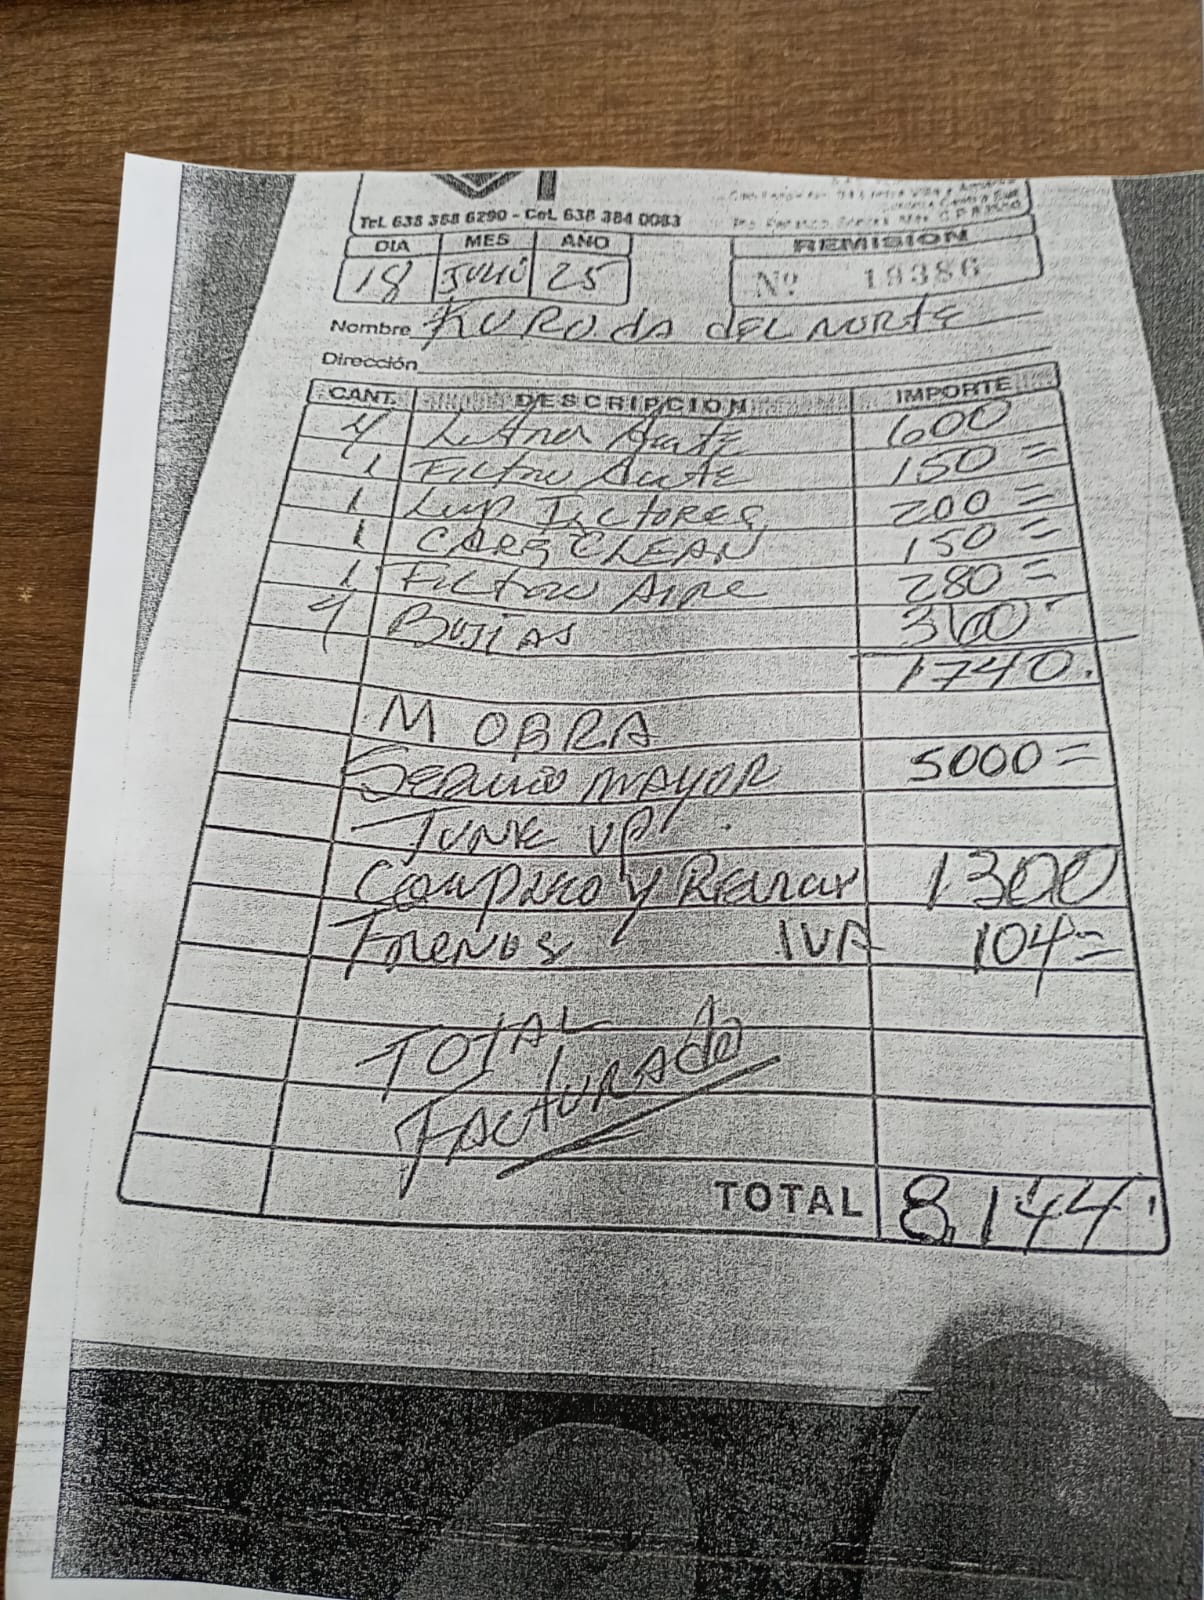 Tel. 638 388 6290 - Cel. 638 384 0083
DIA MES AÑO
18 JULIO 25
REMISION
Nº 19386
Nombre KURODA DEL NORTE
Dirección
CANT. DESCRIPCION IMPORTE
4 Aceite 600
1 Filtro Aceite 150=
1 Lup Inctores 200=
1 CARB CLEAN 150=
1 Filtro Aire 280=
4 Bujias 360
1740.
M OBRA
Servicio mayor 5000=
TUNE UP.
Compleo y Revizar 1300
Frenos IVA 104=
TOTAL
FACTURADO
TOTAL 8,144